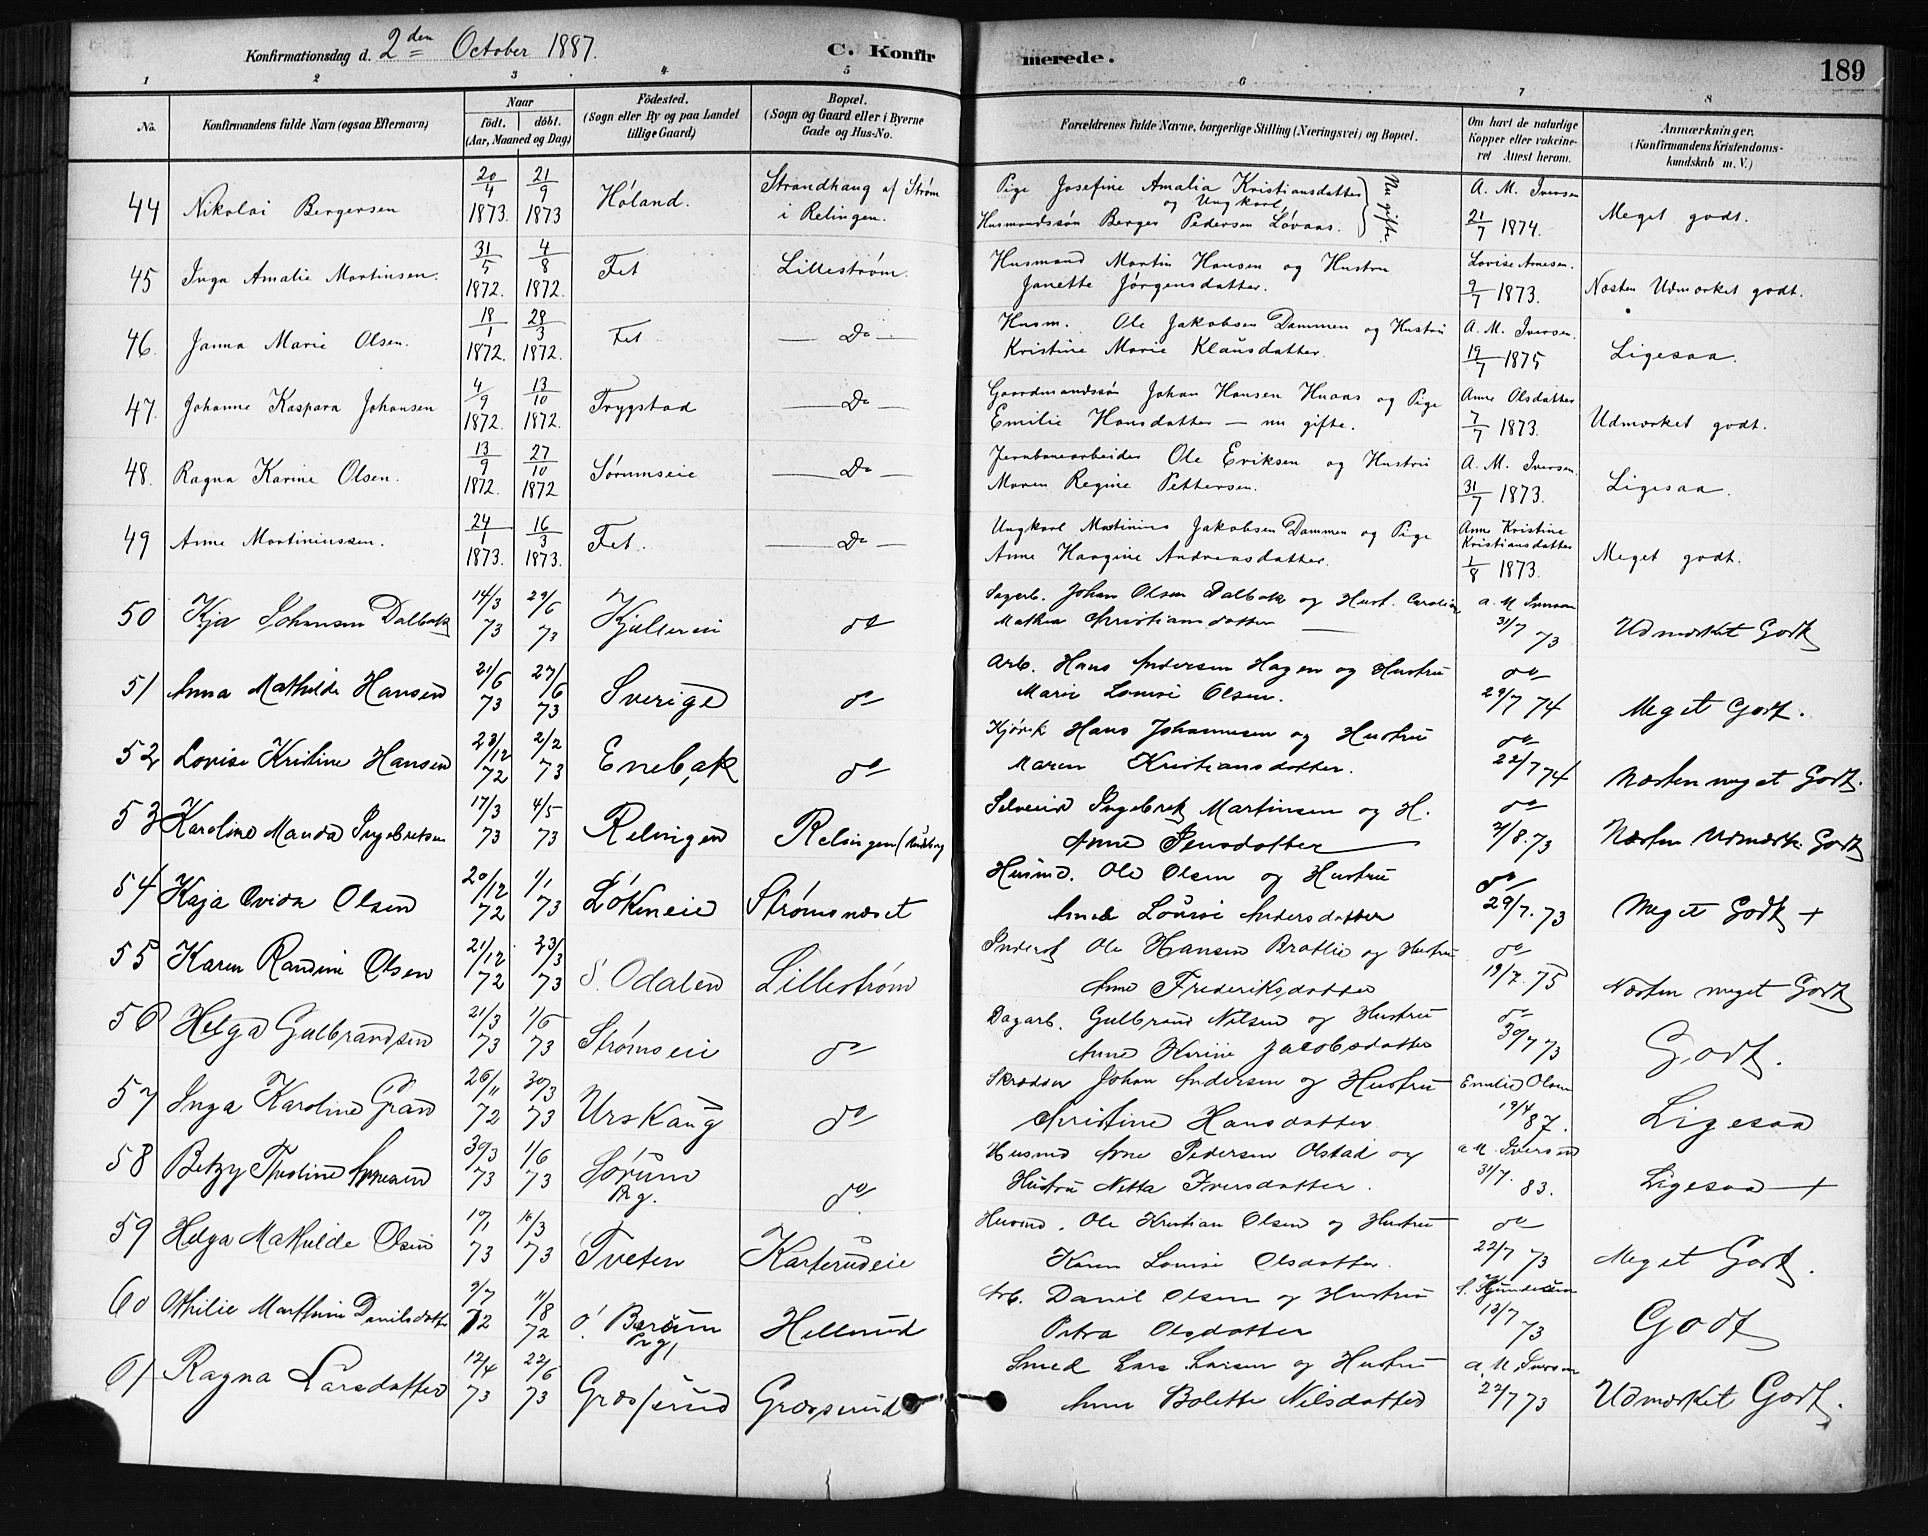 Konfirmationsdag d. 2den October 1887. C. Konfirmerede. 189
1 2 3 4 5 6 7 8
No. Konfirmandens fulde Navn (ogsaa Efternavn) Naar födt. döbt. (Aar, Maaned og Dag) Födested. (Sogn eller By og paa Landet tillige Gaard) Bopæl. (Sogn og Gaard eller i Byerne Gade og Hus-No. Forældrenes fulde Navne, borgerlige Stilling (Næringsvei) og Bopæl. Om havt de naturlige Kopper eller vakcineret Attest herom. Anmærkninger. (Konfirmandens Kristendomskundskab m. V.)
44 Nikolai Bergersen 20/4 1873. 21/9 1873 Høland. Strandhaug af Strøm i Relingen. Pige Josefine Amalia Kristiansdatter og Ungkarl, Husmandssøn Berger Pedersen Løvaas. Nu gifte. A. M. Iversen 21/7 1874. Meget godt.
45 Inga Amalie Martinsen. 31/5 1872. 4/8 1872. Fet Lillestrøm. Husmand Martin Hansen og Hustru Janette Jørgensdatter. Lovise Arnesen. 9/7 1873. Næsten Udmærket godt.
46. Janna Marie Olsen. 18/1 1872. 28/3 1872. Fet Do Husm. Ole Jakobsen Dammen og Hustru Kristine Marie Klausdatter. A. M. Iversen. 19/7 1875 Ligesaa.
47. Johanne Kaspara Johansen 4/9 1872. 13/10 1872. Trygstad Do Gaardmandssøn Johan Hansen Huaas og Pige Emilie Hansdatter — nu gifte. Anne Olsdatter 7/7 1873. Udmærket godt.
48. Ragna Karine Olsen. 13/9 1872. 27/10 1872 Sørumseie Do Jernbanearbeider Ole Eriksen og Hustru Maren Regine Pettersen. A. M. Iversen. 31/7 1873. Ligesaa.
49 Anne Martiniussen. 24/1 1873. 16/3 1873. Fet. Do Ungkarl Martinius Jakobsen Dammen og Pige Anne Haagine Andreasdatter. Anne Kristine Kristiansdatter 1/8 1873. Meget godt.
50 Kja Johansen Dalbak 14/3 73 29/6 73 do Sagarb. Johan Olsen Dalbak og Hust. Caroline Mathea Christiansdatter a. M Iversen 31/7 73 Udmærket Godt
51 Anna Mathilde Hansen 21/6 73 27/6 73 Sverige do Arb. Hans Andersen Hagen og Hustru Marie Louise Olsen. do 29/7 74 Meget Godt.
52 Lovise Kristine Hansen 23/12 72 2/2 73 Enebak do Hans Johannesen og Hustru Maren Kristiansdatter. do 22/7 74 Næsten meget Godt.
53 Karoline Manda Ingebretsen 17/3 73 4/5 73 Relingen Relingen Selveier Ingebret Martinsen og H. Anne Jensdatter do 2/8. 73 Næsten Udmærk. Godt
54 Kaja Ovida Olsen 20/12 72 1/1 73 Løkeneie Strømsnæset Husmd. Ole Olsen og Hustru Anne Louise Andersdatter do 29/7. 73 Meget Godt +
55 Karen Randine Olsen 21/12 72 23/3 73 S. Odalen Lillestrøm Inderst Ole Hansen Bratlie og Hustru Anne Frederiksdatter do 19/7. 75 Næsten meget Godt
56 Helga Gulbrandsen 21/3 73 1/6 73 Strømseie do Dagarb. Gulbrand Nilsen og Hustru Anne Karine Jacobsdatter do 30/7 73 Godt.
57 Inga Karoline Gran 26/11 72 30/3 73 Urskaug do Skrædder Johan Andersen og Hustru Christine Hansdatter Emilie Olsen 19/4 87. Ligesaa
58 Betzy Tholine Arnesen 30/3 73 1/6 73 Sørum Prg. do Husmd Arne Pedersen Olstad og Hustru Netta Iversdatter. a. M. Iversen 31/7. 83. Ligesaa +
59 Helga Mathilde Olsen 10/1 73 16/3 73 Tveten Karterudeie Husmd. Ole Kristian Olsen og Hustru Karen Louise Olsdatter. do 22/7 73 Meget Godt.
60 Othilie Marthine Danilsdatter 9/7 72 11/8 72 Ø. Bærum Prg, Hellerud Arb. Daniel Olsen og Hustru Petra Olsdatter 13/7 73 Godt
61 Ragna Larsdatter 12/4 73 22/6 73 Græsserud Græsserud Smed Lars Larsen og Hustru Anne Bolette Nilsdatter a. M. Iversen 22/7 73 Udmærket Godt.